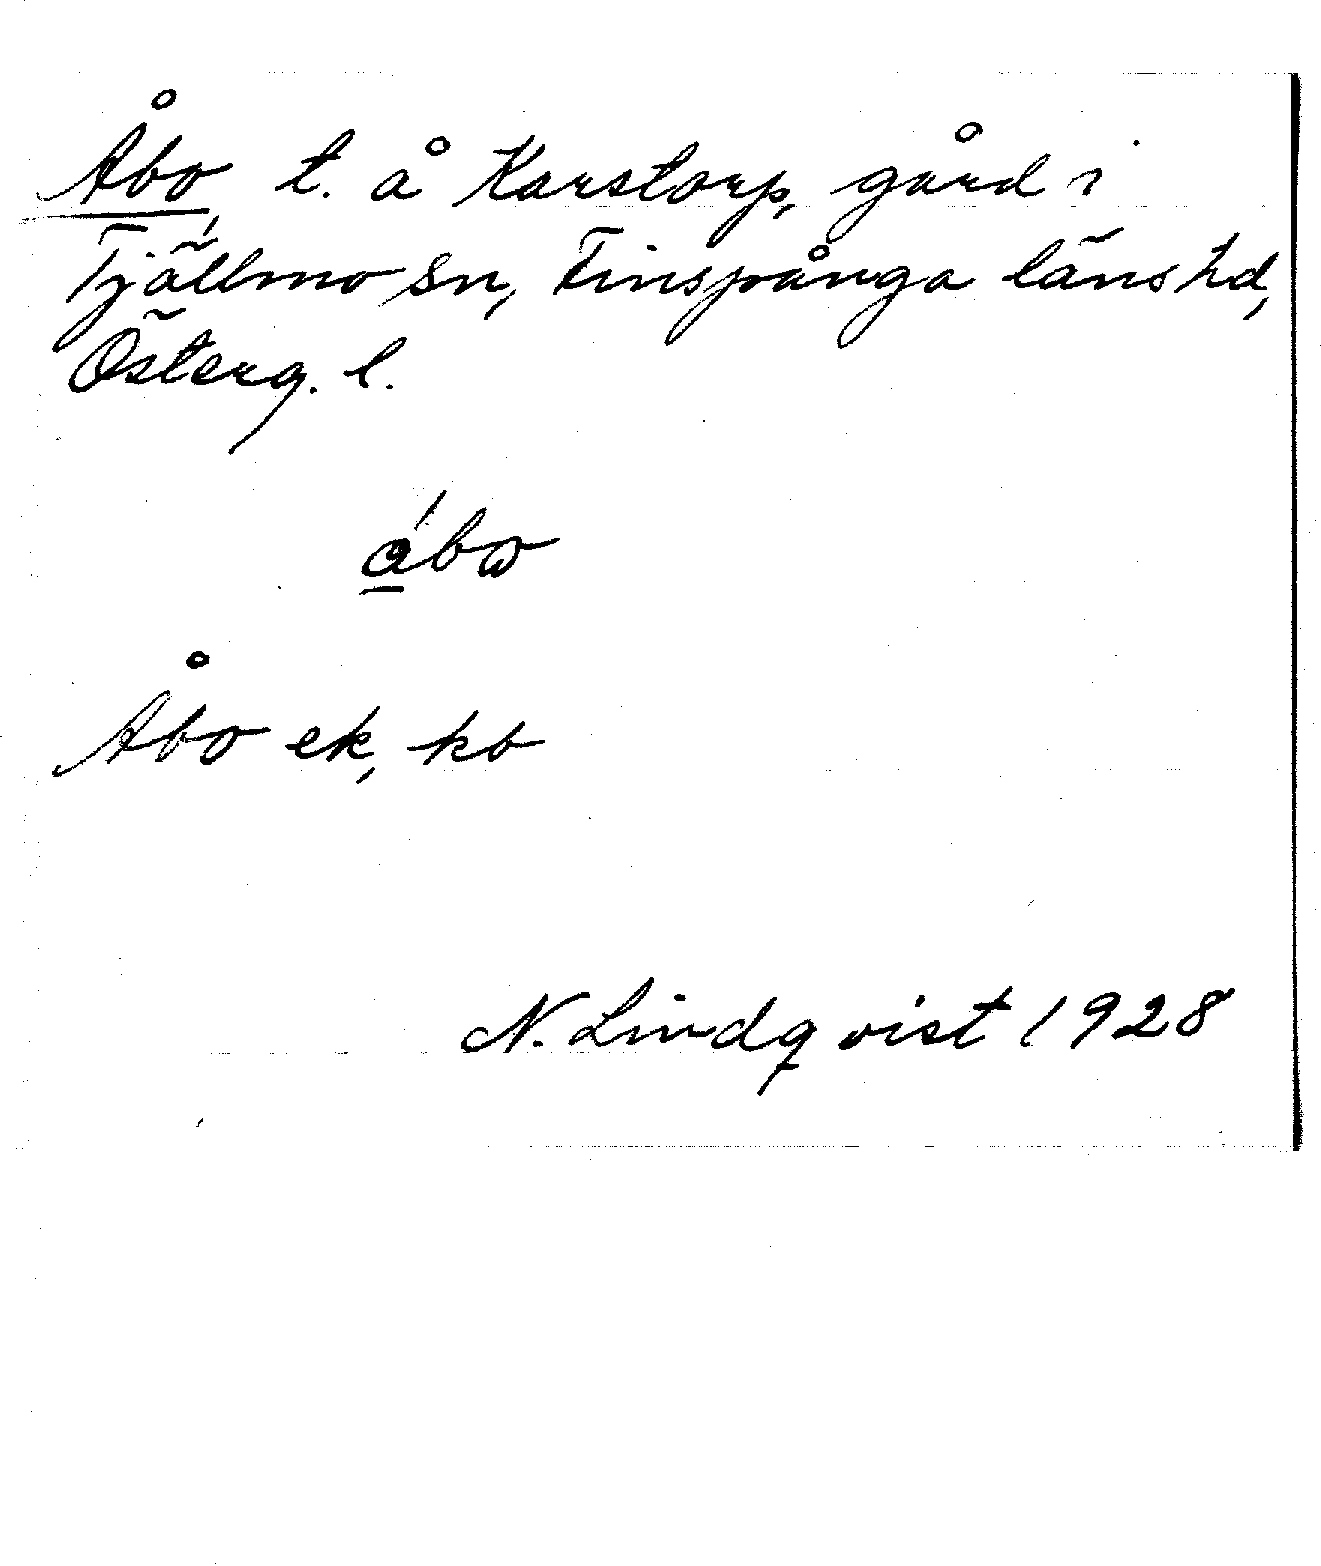 Åbo, t. å Karstorp, gård i
Tjällmo sn, Finspånga läns hd,
Österg. l.
á̲bω
Åbo ek, kb
N. Lindqvist 1928